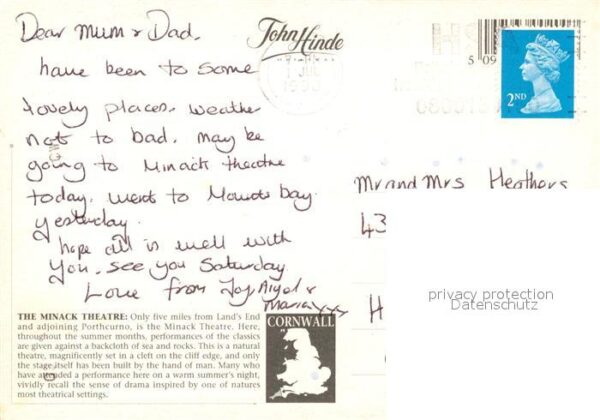 Dear Mum & Dad,
have been to some
lovely places. Weather
not to bad. may be
going to Minack theatre
today. went to Mounts bay
yesterday.
hope all is well with
you. see you Saturday
Love from
Maria xxx
John Hinde
ORIGINAL
1 JUL
5 09
2ND
Mr and Mrs Heathers
43
H
privacy protection
Datenschutz
THE MINACK THEATRE: Only five miles from Land's End
and adjoining Porthcurno, is the Minack Theatre. Here,
throughout the summer months, performances of the classics
are given against a backcloth of sea and rocks. This is a natural
theatre, magnificently set in a cleft on the cliff edge, and only
the stage itself has been built by the hand of man. Many who
have attended a performance here on a warm summer's night,
vividly recall the sense of drama inspired by one of natures
most theatrical settings.
CORNWALL